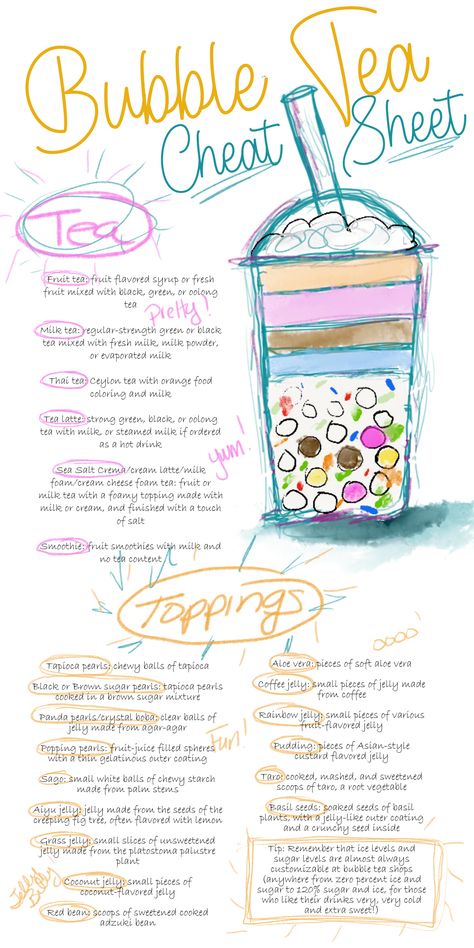 Bubble Tea
Cheat Sheet
Tea
Fruit tea: fruit flavored syrup or fresh
fruit mixed with black, green, or oolong
tea
Pretty!
Milk tea: regular-strength green or black
tea mixed with fresh milk, milk powder,
or evaporated milk
Thai tea: Ceylon tea with orange food
coloring and milk
Tea latte: strong green, black, or oolong
tea with milk, or steamed milk if ordered
as a hot drink
yum!
Sea Salt Crema/cream latte/milk
foam/cream cheese foam tea: fruit or
milk tea with a foamy topping made with
milk or cream, and finished with a touch
of salt
Smoothie: fruit smoothies with milk and
no tea content
Toppings
Tapioca pearls: chewy balls of tapioca
Black or Brown sugar pearls: tapioca pearls
cooked in a brown sugar mixture
Panda pearls/crystal boba: clear balls of
jelly made from agar-agar
Popping pearls: fruit-juice filled spheres
with a thin gelatinous outer coating
Fun!
Sago: small white balls of chewy starch
made from palm stems
Aiyu jelly: jelly made from the seeds of the
creeping fig tree, often flavored with lemon
Grass jelly: small slices of unsweetened
jelly made from the platostoma palustre
plant
Coconut jelly: small pieces of
coconut-flavored jelly
Red bean: scoops of sweetened cooked
adzuki bean
oooo!
Aloe vera: pieces of soft aloe vera
Coffee jelly: small pieces of jelly made
from coffee
Rainbow jelly: small pieces of various
fruit-flavored jelly
Pudding: pieces of Asian-style
custard flavored jelly
Taro: cooked, mashed, and sweetened
scoops of taro, a root vegetable
Basil seeds: soaked seeds of basil
plants, with a jelly-like outer coating
and a crunchy seed inside
Tip: Remember that ice levels and
sugar levels are almost always
customizable at bubble tea shops
(anywhere from zero percent ice and
sugar to 120% sugar and ice, for those
who like their drinks very, very cold
and extra sweet!)